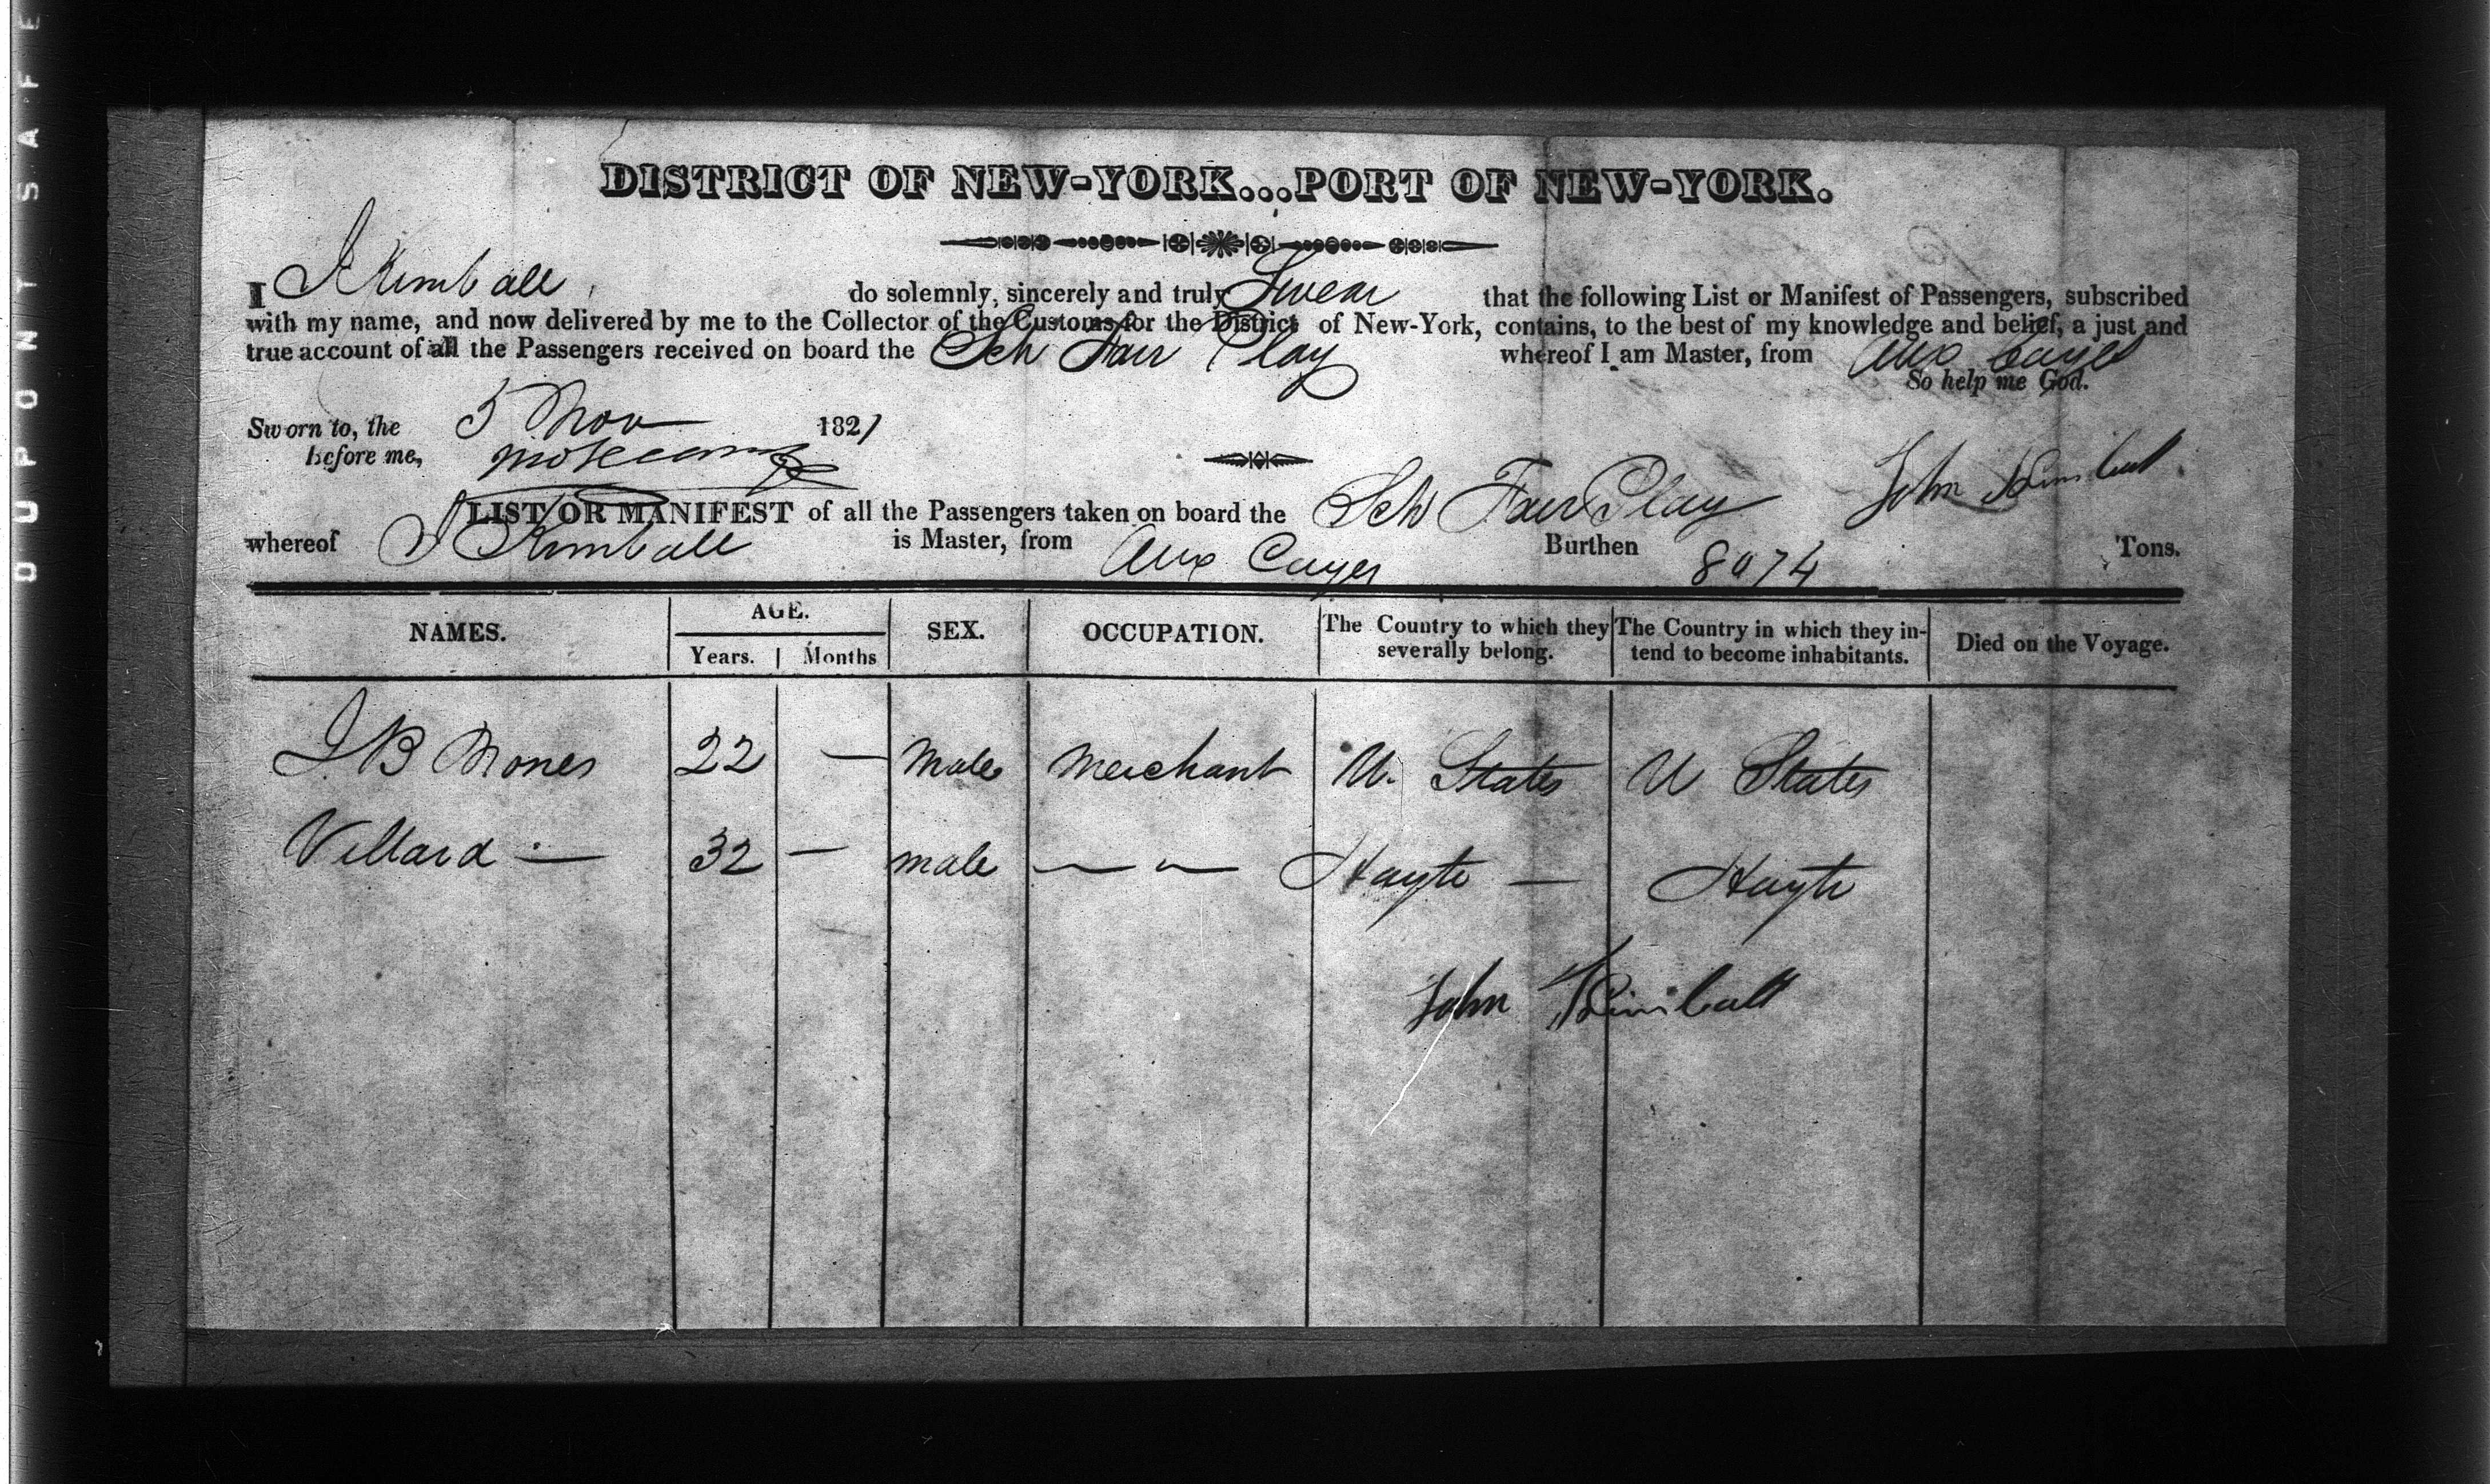 DUPONT SAFE
DISTRICT OF NEW-YORK...PORT OF NEW-YORK.
I J Kimball do solemnly, sincerely and truly Swear that the following List or Manifest of Passengers, subscribed
with my name, and now delivered by me to the Collector of the Customs for the District of New-York, contains, to the best of my knowledge and belief, a just and
true account of all the Passengers received on board the Sch Fair Play whereof I am Master, from Aux Cayes
So help me God.
Sworn to, the 5 Nov 1821
before me,
John Kimball
LIST OR MANIFEST of all the Passengers taken on board the Sch Fair Play
whereof J Kimball is Master, from Aux Cayes Burthen Tons.
NAMES. AGE. SEX. OCCUPATION. The Country to which they severally belong. The Country in which they in-tend to become inhabitants. Died on the Voyage.
Years. Months
J B Mones 22 — Male Merchant U. States U States
Villard — 32 — male — — Hayti — Hayti
John Kimball